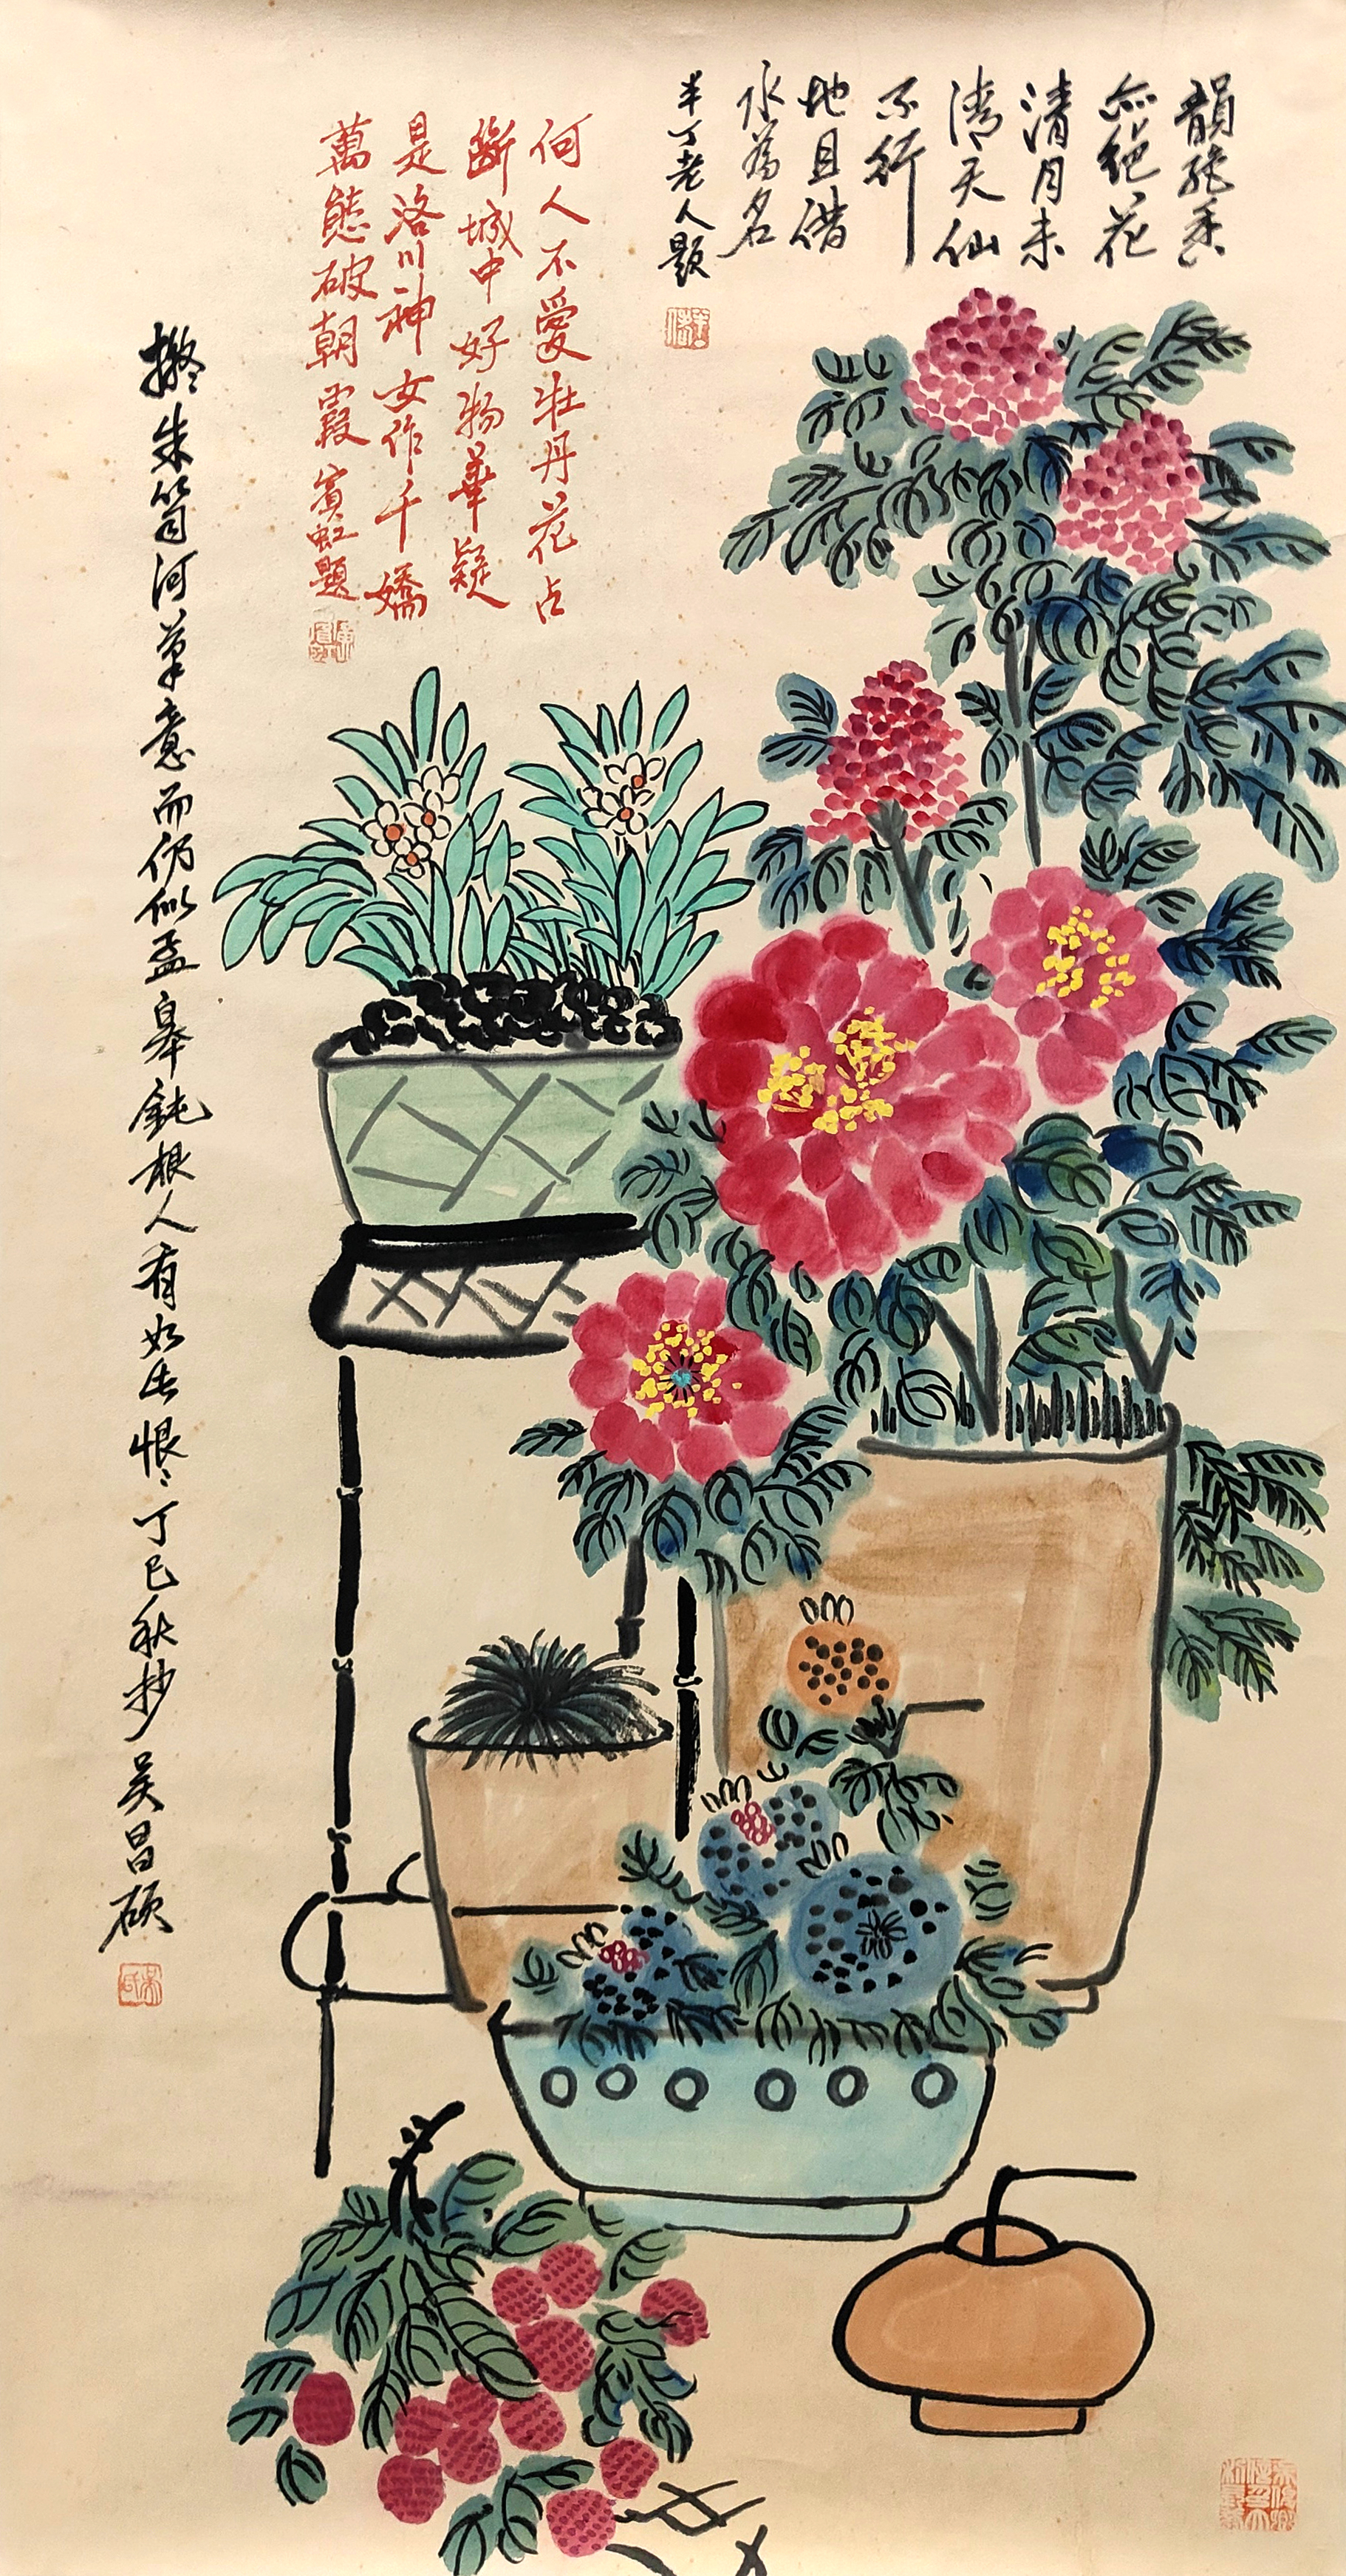 韻絕香
亦絕花
清月未
清天仙
不行
地且借
水為名
半丁老人題
何人不愛牡丹花占
斷城中好物華疑
是洛川神女作千嬌
萬態破朝霞賓虹題
擬朱笥河筆意而仿似孟皋鈍根人有如此恨〻丁巳秋抄吳昌碩